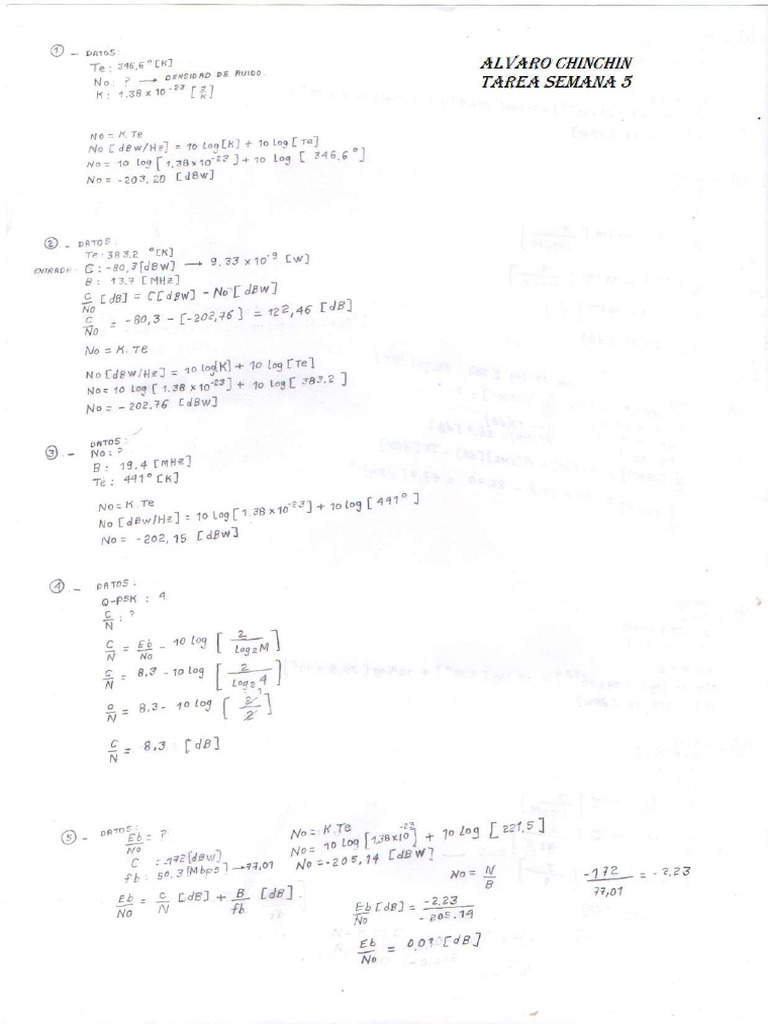 ALVARO CHINCHIN
TAREA SEMANA 5
① - DATOS:
Te: 346,6° [K]
No: ? → DENSIDAD DE RUIDO.
K: 1.38 x 10^-23 [J/K]
No = K.Te
No [dBw/Hz] = 10 log[K] + 10 log [Te]
No = 10 log [1.38x10^-23] + 10 log [346.6°]
No = -203.20 [dBw]
② - DATOS:
Te: 383.2 °[K]
ENTRADA: C: -80,3 [dBW] → 9.33 x 10^-9 [W]
B: 13.7 [MHz]
C/No [dB] = C[dBW] - No [dBW]
C/No = -80,3 - [-202,76] = 122,46 [dB]
No = K.Te
No [dBw/Hz] = 10 log[K] + 10 log [Te]
No = 10 log [1.38 x 10^-23] + 10 log [383.2]
No = -202.76 [dBw]
③ - DATOS:
No: ?
B: 19.4 [MHz]
Te: 441° [K]
No = K.Te
No [dBw/Hz] = 10 log [1.38 x10^-23] + 10 log [441°]
No = -202,15 [dBw]
④ - DATOS:
Q-PSK: 4
C/N: ?
C/N = Eb/No - 10 log [2/log2M]
C/N = 8,3 - 10 log [2/log2 4]
C/N = 8,3 - 10 log [2/2]
C/N = 8,3 [dB]
⑤ - DATOS:
Eb/No = ?
C: -172 [dBw]
fb: 50.3 [Mbps] → 77,01
Eb/No = C/N [dB] + B/fb [dB].
No = K.Te
No = 10 log [1.38x10^-23] + 10 log [221,5]
No = -205,14 [dBW]
No = N/B
-172/77,01 = -2,23
Eb/No [dB] = -2,23/-205.14
Eb/No = 0,01 [dB]